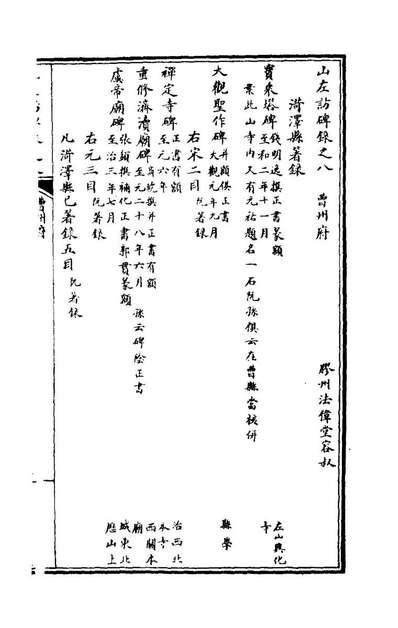 山左訪碑錄之八　曹州府　膠州法偉堂容叔
菏澤縣著錄
寶乘塔碑　錢明逸撰正書篆額　至和二年十一月　左山興化寺
案此山寺內又有元祐題名一石阮孫俱云在曹縣當核併
大觀聖作碑　并額俱正書　大觀元年九月　縣學
右宋二目　阮著錄
禪定寺碑　正書有額　至元六年　治西北本寺
重修濟瀆廟碑　撰并正書有額　至元二十八年六月　孫云碑陰正書　西關本廟
虞帝廟碑　張頞撰補化正書郭貫篆額　至治三年七月　城東北歷山上
右元三目　阮著錄
凡菏澤縣已著錄五目　阮著錄
曹州府